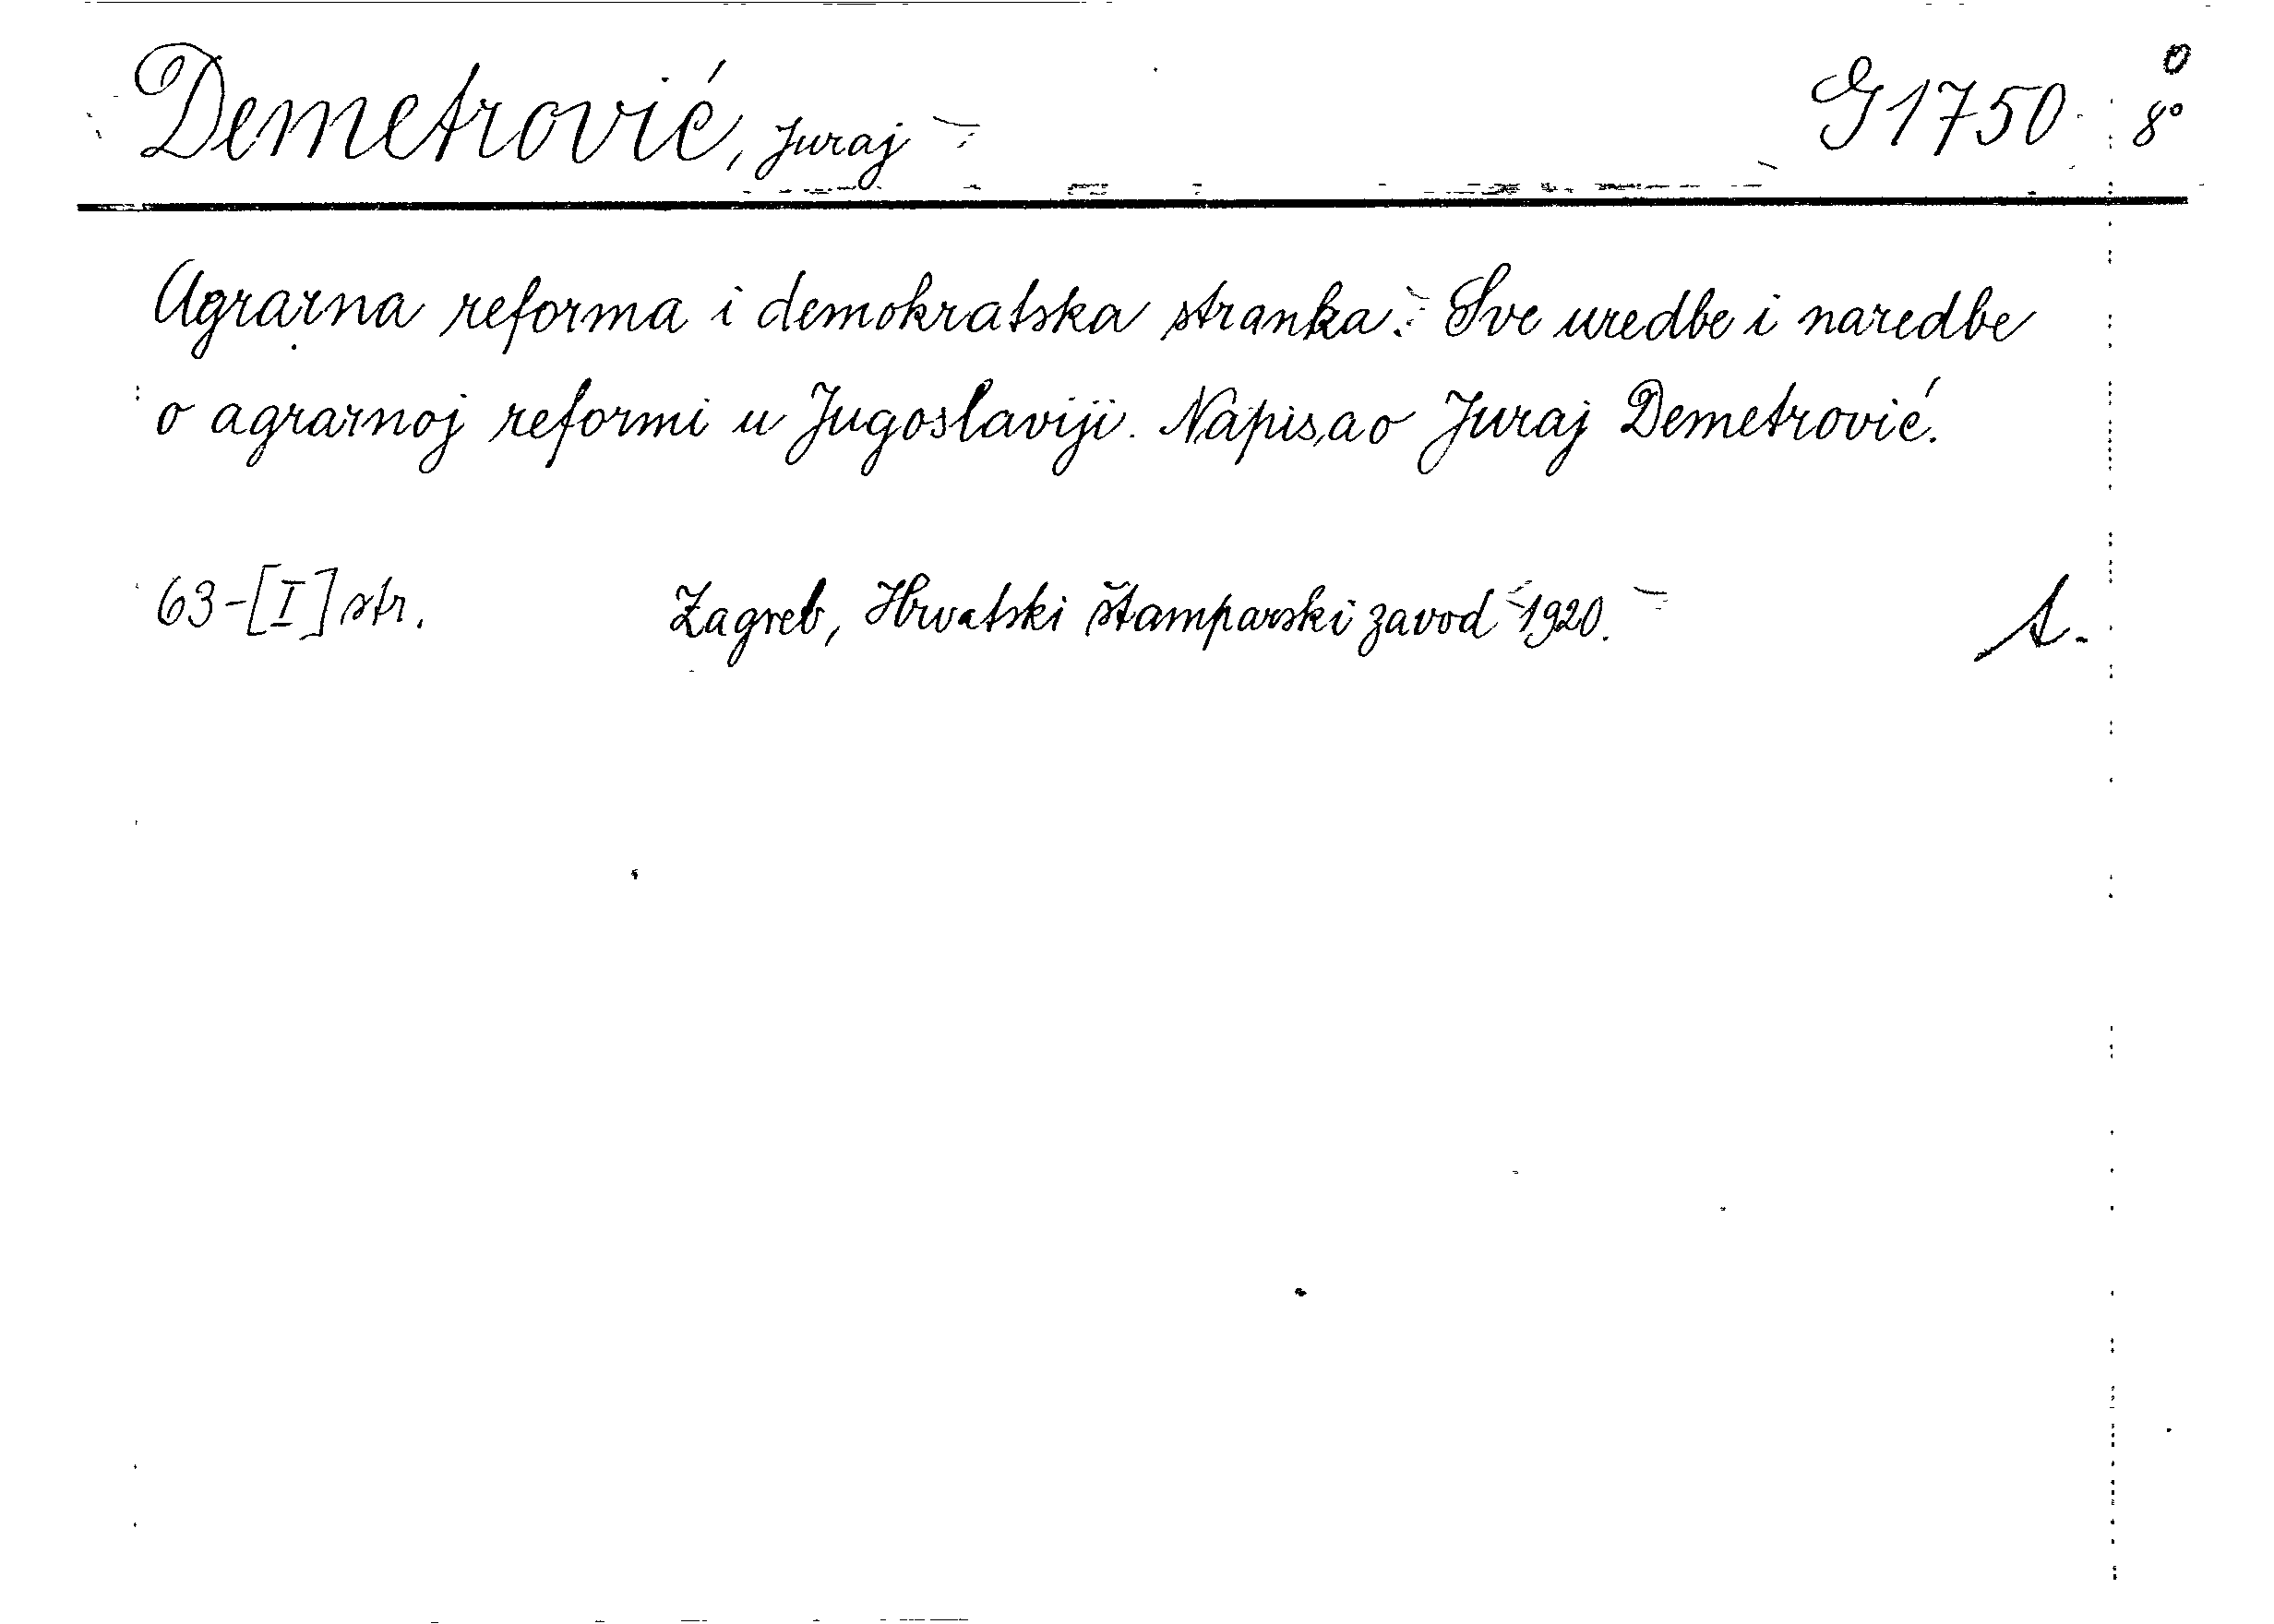 Demetrović, Juraj G 1750 8°
Agrarna reforma i demokratska stranka. Sve uredbe i naredbe
o agrarnoj reformi u Jugoslaviji. Napisao Juraj Demetrović.
63-[I] str. Zagreb, Hrvatski štamparski zavod 1920.